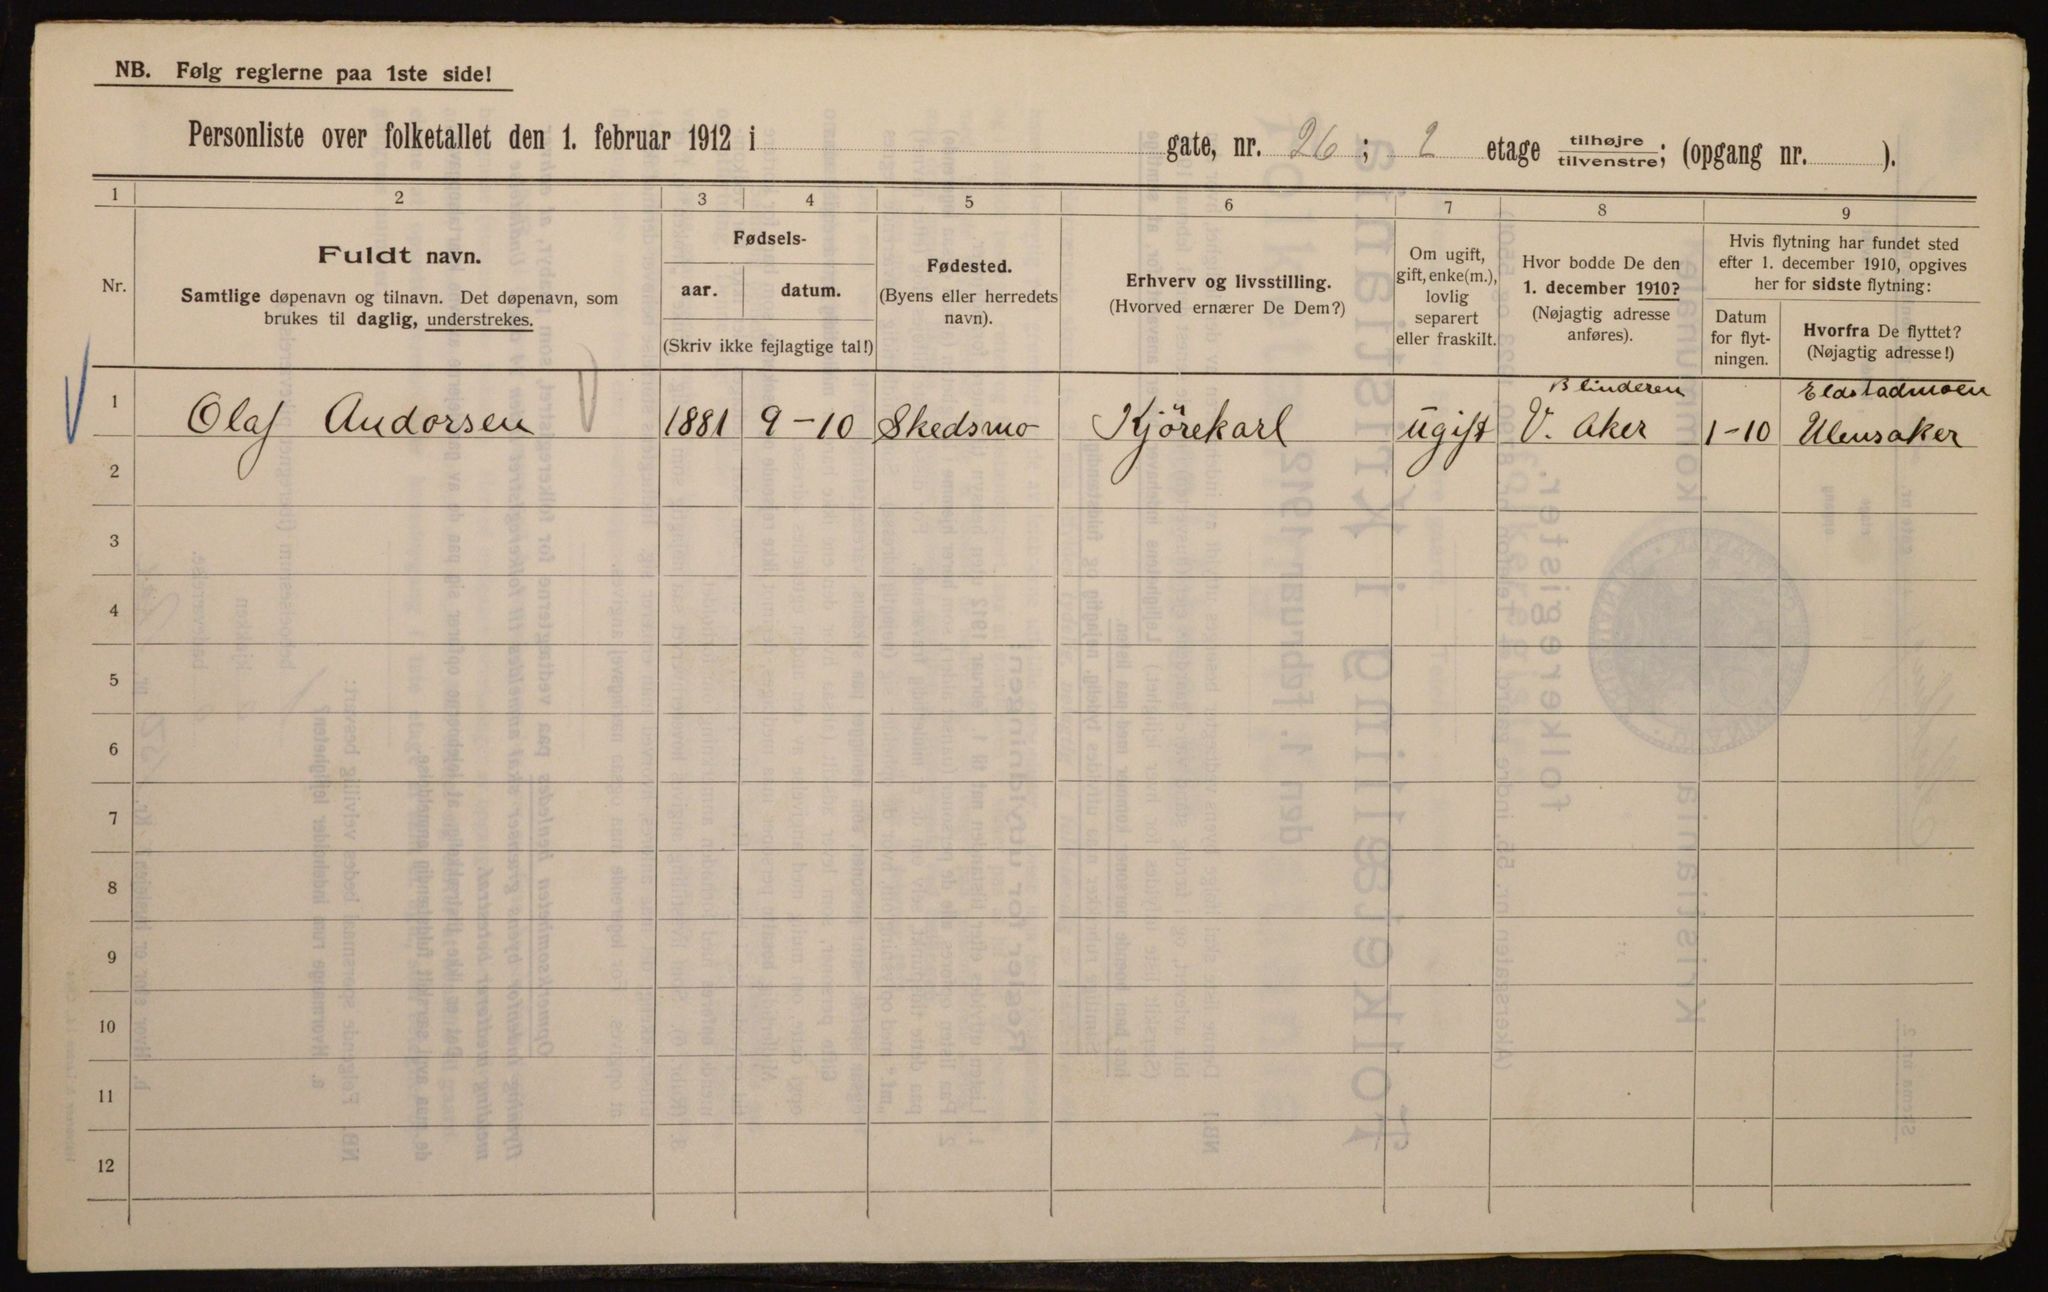 NB. Følg reglerne paa 1ste side!
Personliste over folketallet den 1. februar 1912 i gate, nr. 26 ; 2 etage tilhøjre/tilvenstre; (opgang nr. ).
1 2 3 4 5 6 7 8 9
Nr.
Fuldt navn.
Samtlige døpenavn og tilnavn. Det døpenavn, som
brukes til daglig, understrekes.
Fødsels-
aar. datum.
(Skriv ikke fejlagtige tal!)
Fødested.
(Byens eller herredets
navn).
Erhverv og livsstilling.
(Hvorved ernærer De Dem?)
Om ugift,
gift, enke(m.),
lovlig
separert
eller fraskilt.
Hvor bodde De den
1. december 1910?
(Nøjagtig adresse
anføres).
Hvis flytning har fundet sted
efter 1. december 1910, opgives
her for sidste flytning:
Datum
for flyt-
ningen.
Hvorfra De flyttet?
(Nøjagtig adresse!)
Blinderen Eldstadmoen
1 Olaf Andorsen 1881 9-10 Skedsmo Kjörekarl ugift V. Aker 1-10 Ulensaker
2
3
4
5
6
7
8
9
10
11
12